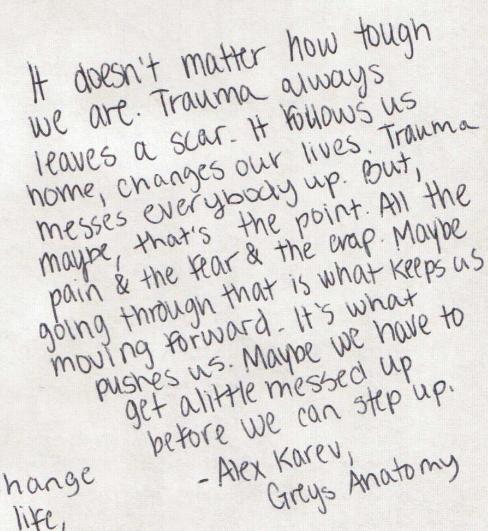 It doesn't matter how tough
we are. Trauma always
leaves a scar. It follows us
home, changes our lives. Trauma
messes everybody up. But,
maybe, that's the point. All the
pain & the fear & the crap. Maybe
going through that is what keeps us
moving forward. It's what
pushes us. Maybe we have to
get a little messed up
before we can step up.
- Alex Karev,
Greys Anatomy
hange
life,